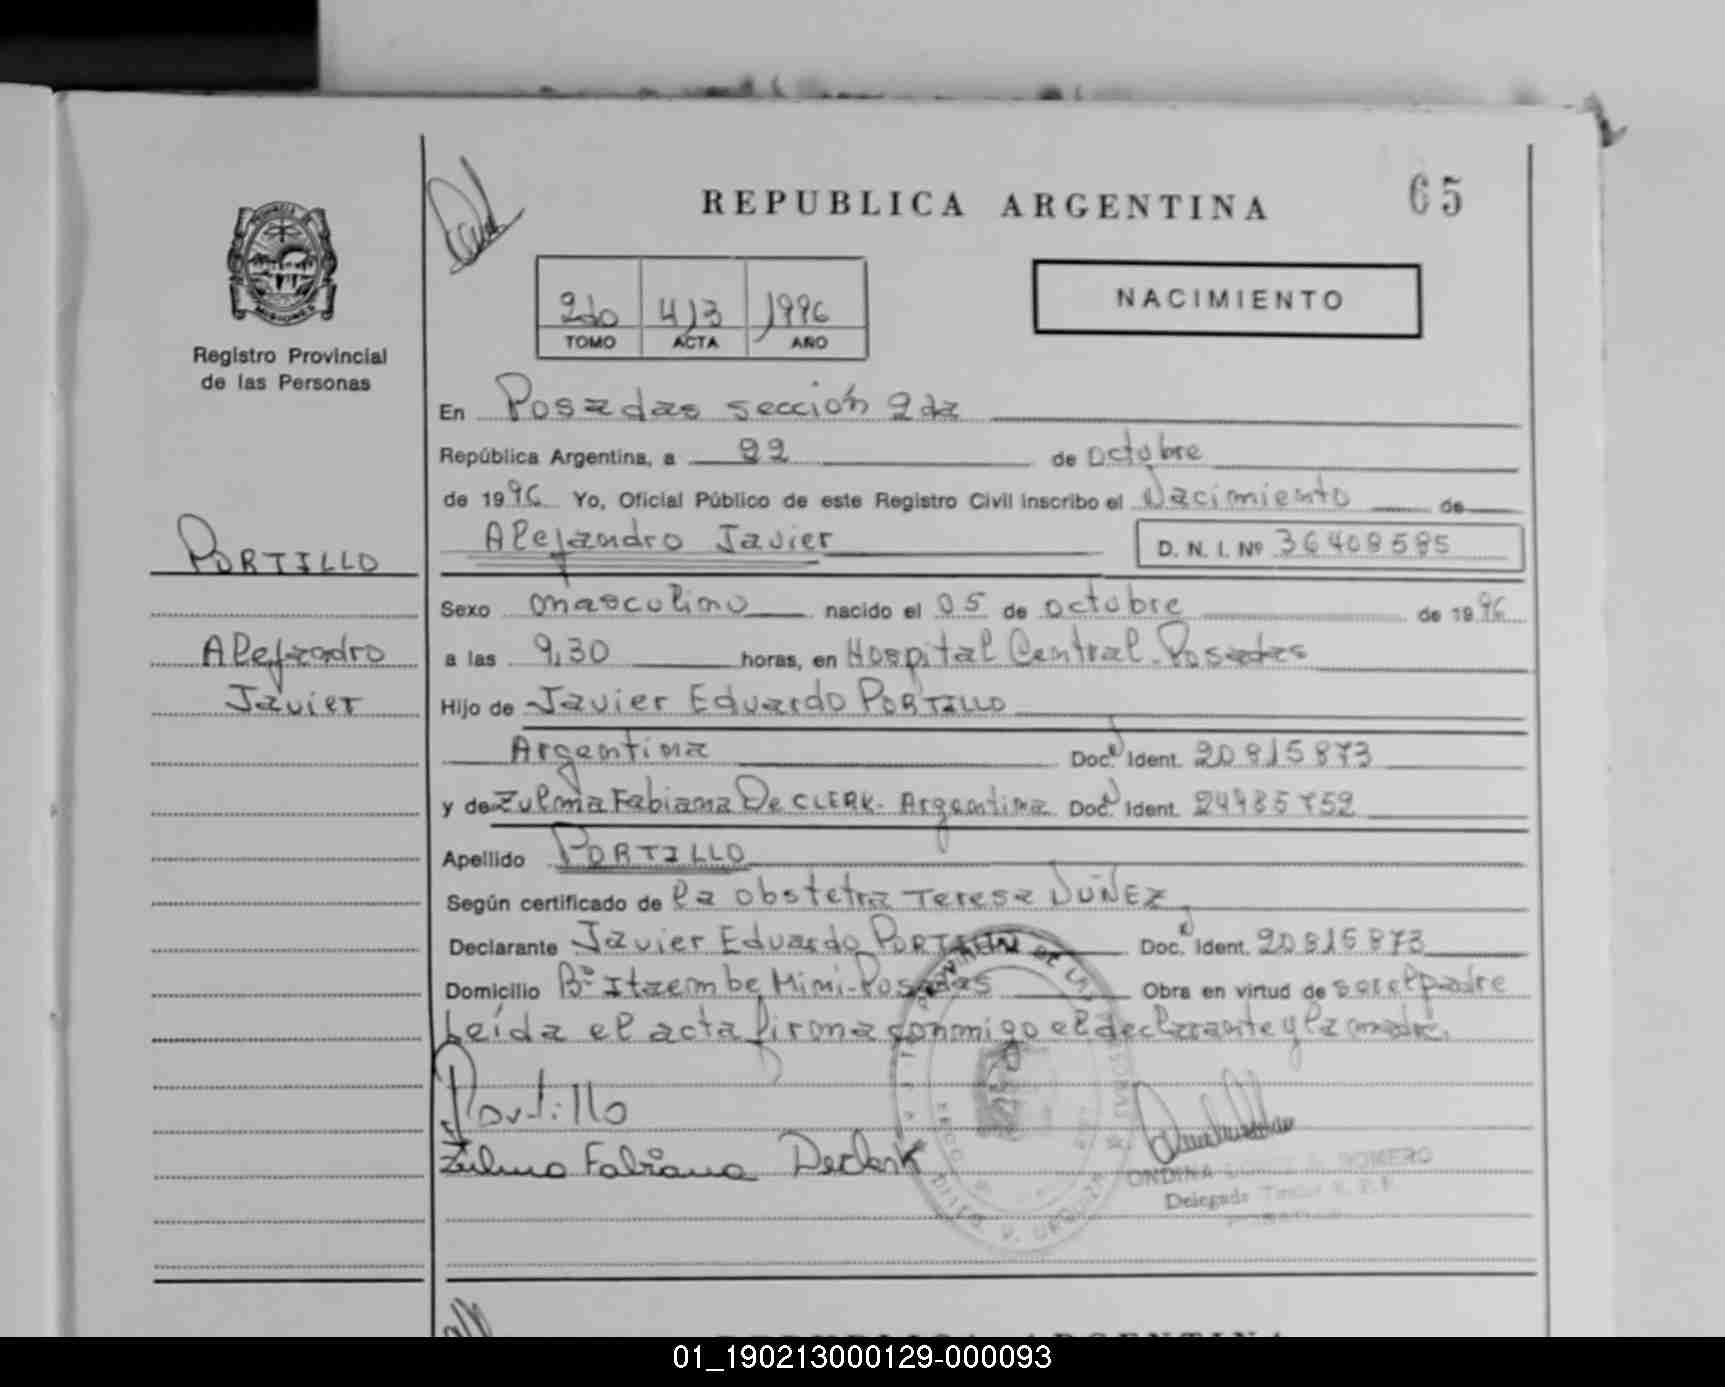 REPUBLICA ARGENTINA
65
PROVINCIA DE
MISIONES
Registro Provincial
de las Personas
2do 413 1996
TOMO ACTA AÑO
NACIMIENTO
En Posadas sección 2da
República Argentina, a 22 de octubre
de 1996 Yo, Oficial Público de este Registro Civil inscribo el Nacimiento de
Alejandro Javier D. N. I. Nº 36408585
PORTILLO
Alejandro
Javier
Sexo masculino nacido el 05 de octubre de 1996
a las 9,30 horas, en Hospital Central-Posadas
Hijo de Javier Eduardo PORTILLO
Argentina Doc. Ident. 20815873
y de Zulma Fabiana De CLERK- Argentina Doc. Ident.
Apellido PORTILLO
Según certificado de la obstetra Teresa NUÑEZ
Declarante Javier Eduardo PORTILLO Doc. Ident. 20815873
Domicilio Bº Itaembe Mini-Posadas Obra en virtud de ser el padre
Leída el acta firma conmigo el declarante y la madre.
Portillo
Zulma Fabiana Declerk
ONDINA ROMERO
Delegada
REPUBLICA ARGENTINA
01_190213000129-000093